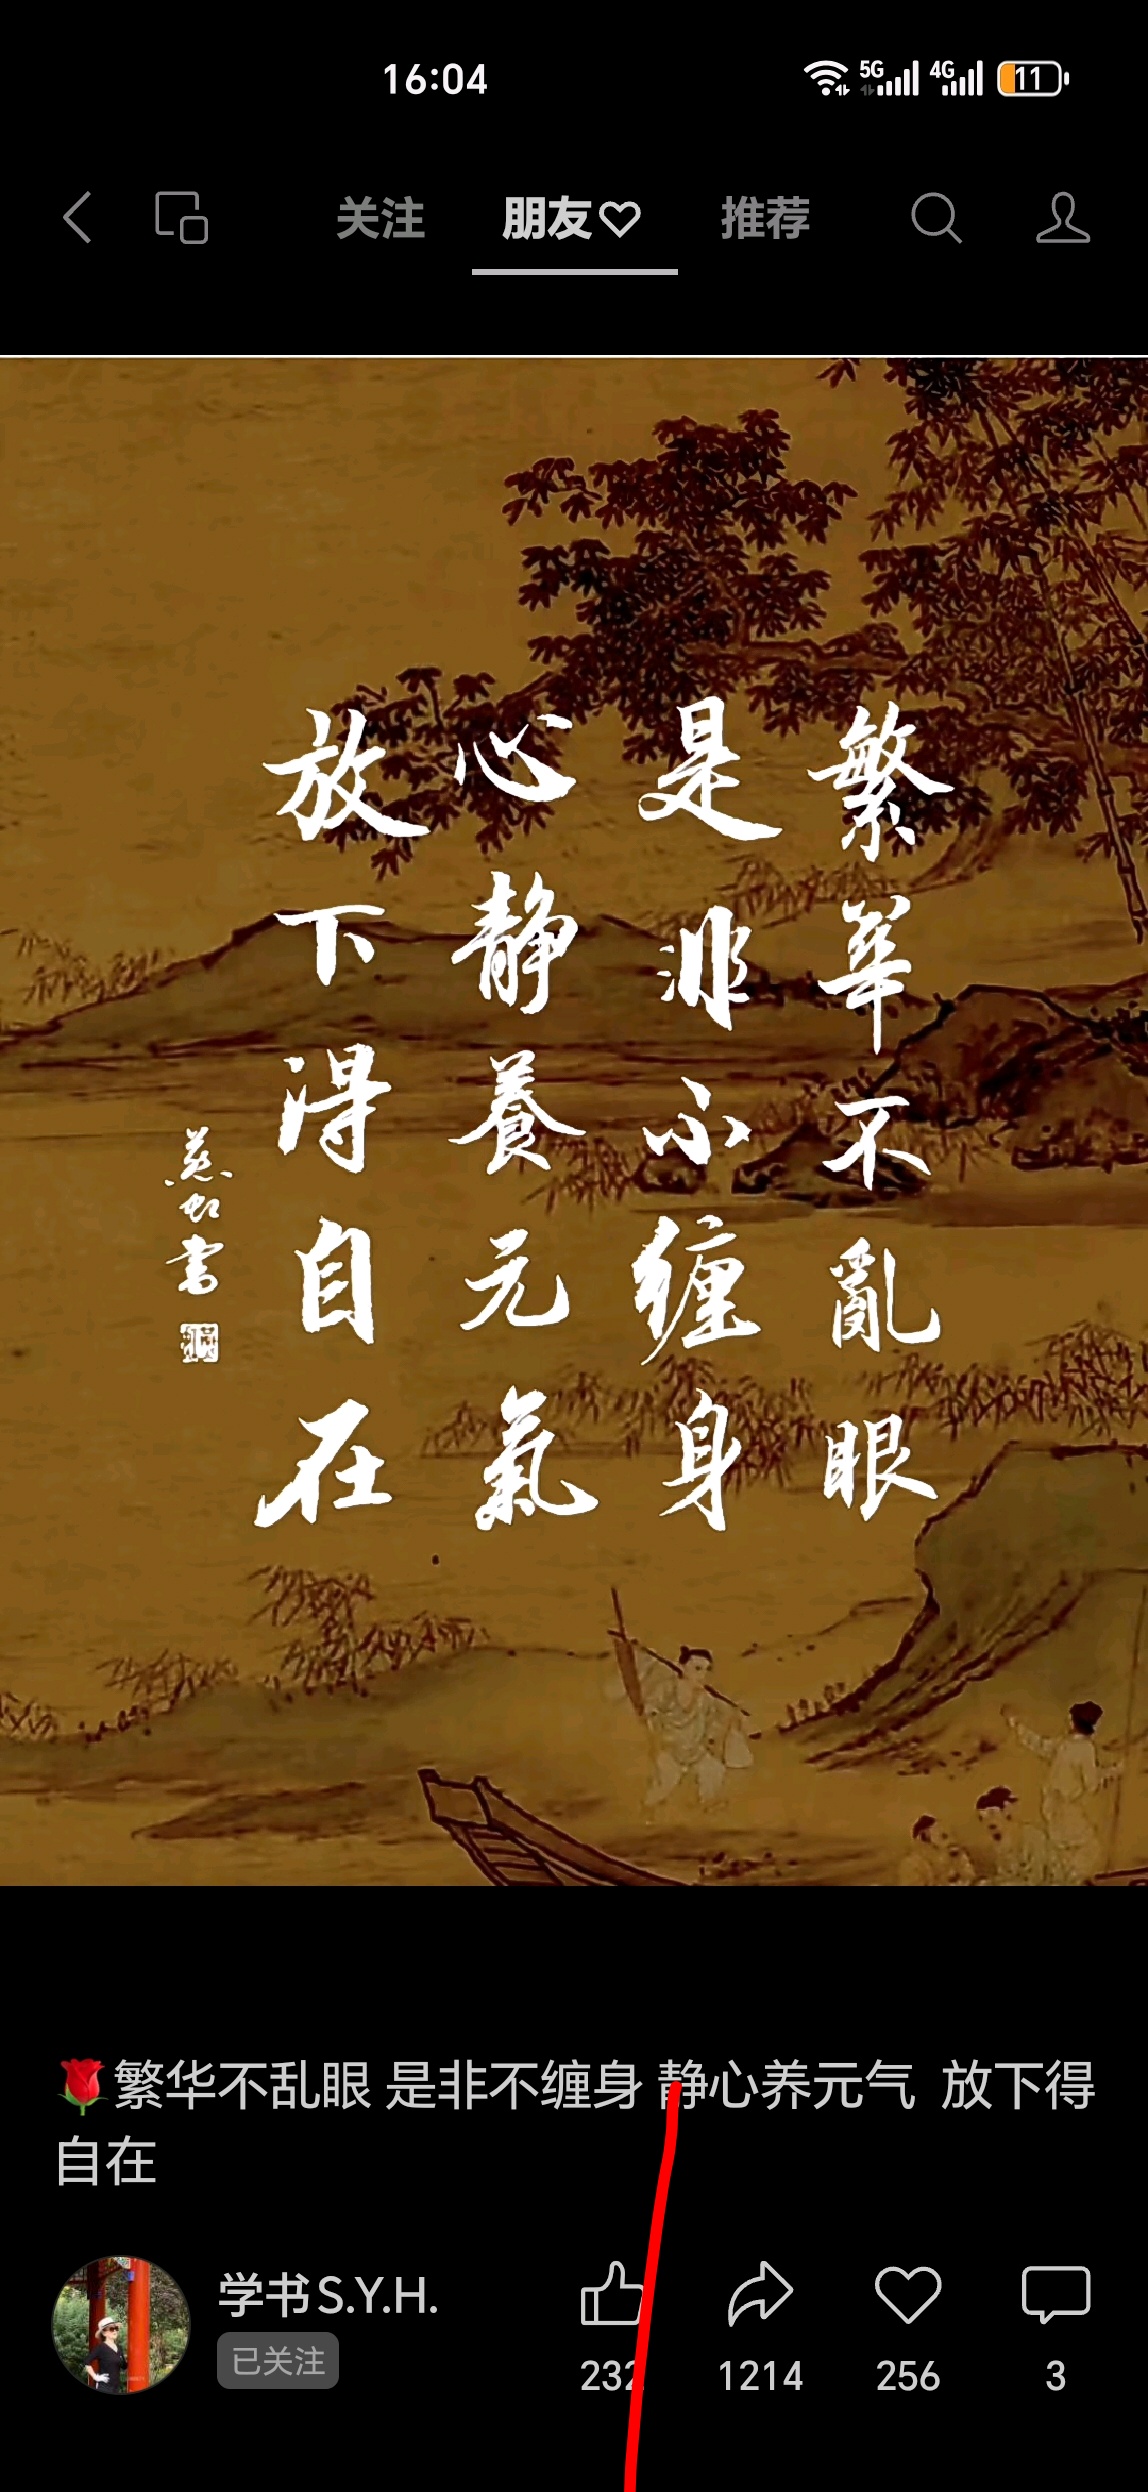 16:04
5G 4G 11
关注 朋友 推荐
繁華不亂眼
是非不缠身
心静養元氣
放下得自在
書
🌹繁华不乱眼 是非不缠身 静心养元气 放下得
自在
学书S.Y.H.
已关注
232 1214 256 3